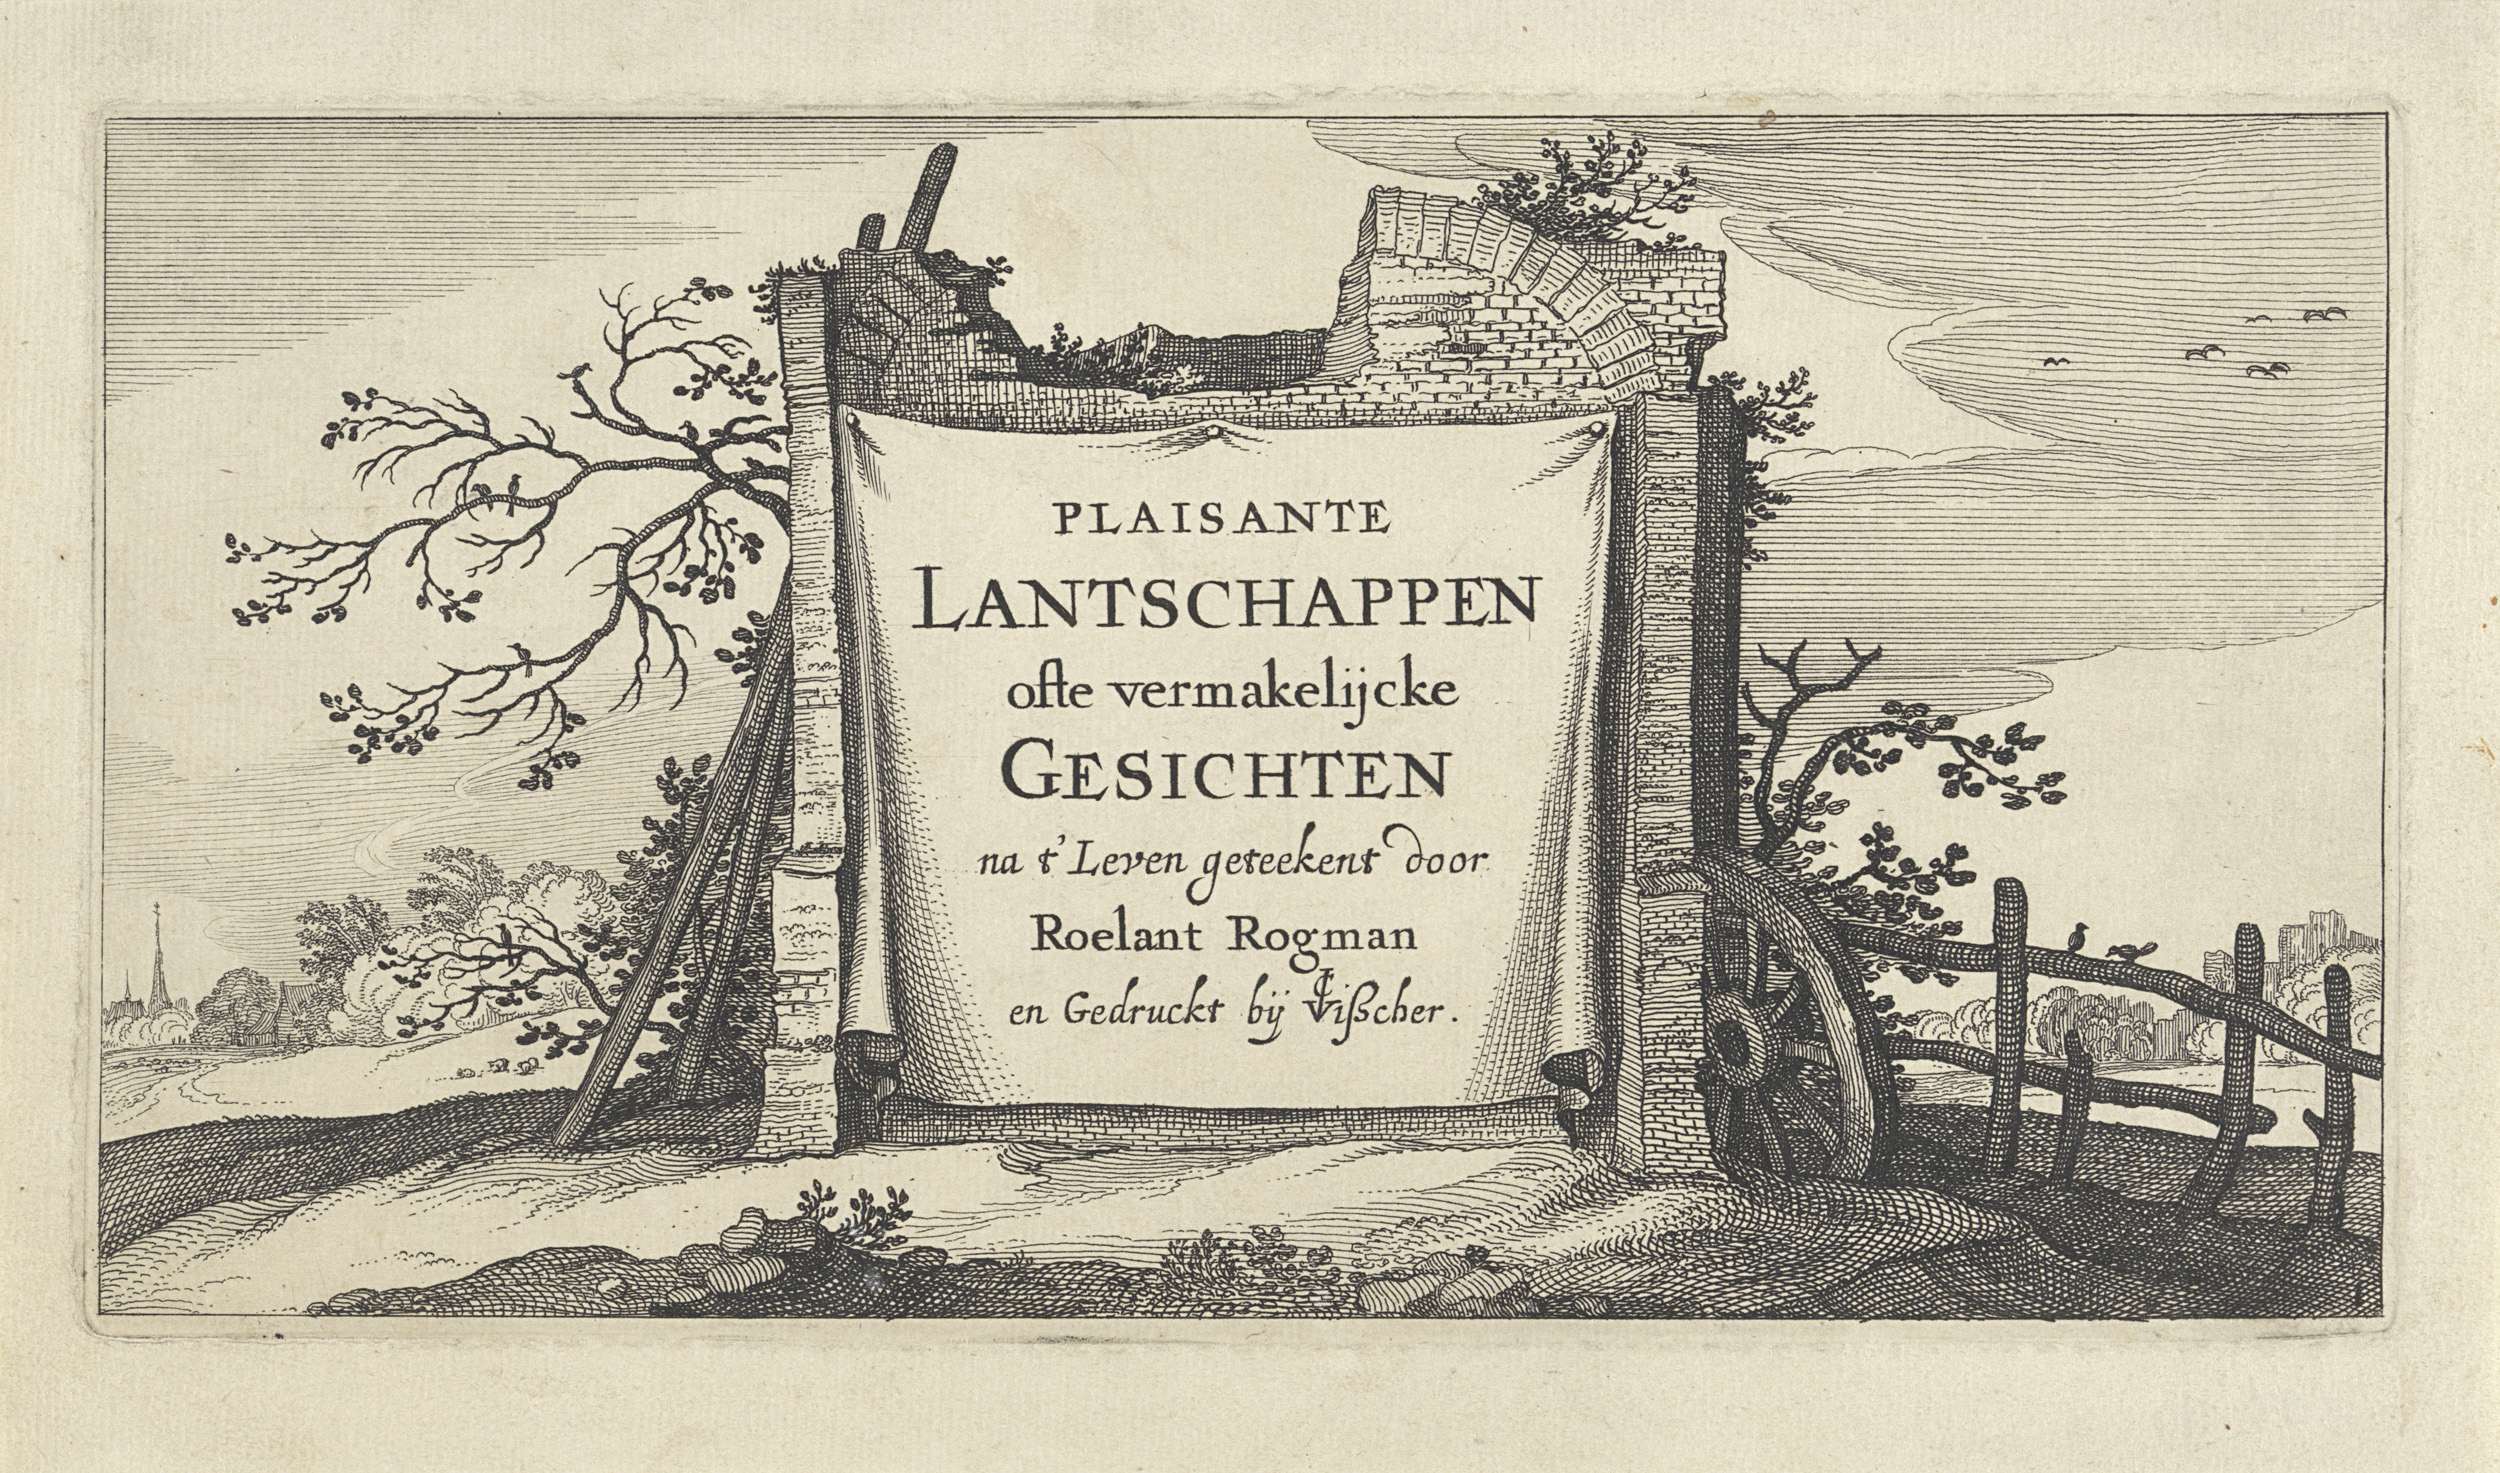 PLAISANTE
LANTSCHAPPEN
ofte vermakelijcke
GESICHTEN
na t' Leven geteekent door
Roelant Rogman
en Gedruckt bij CVißcher.